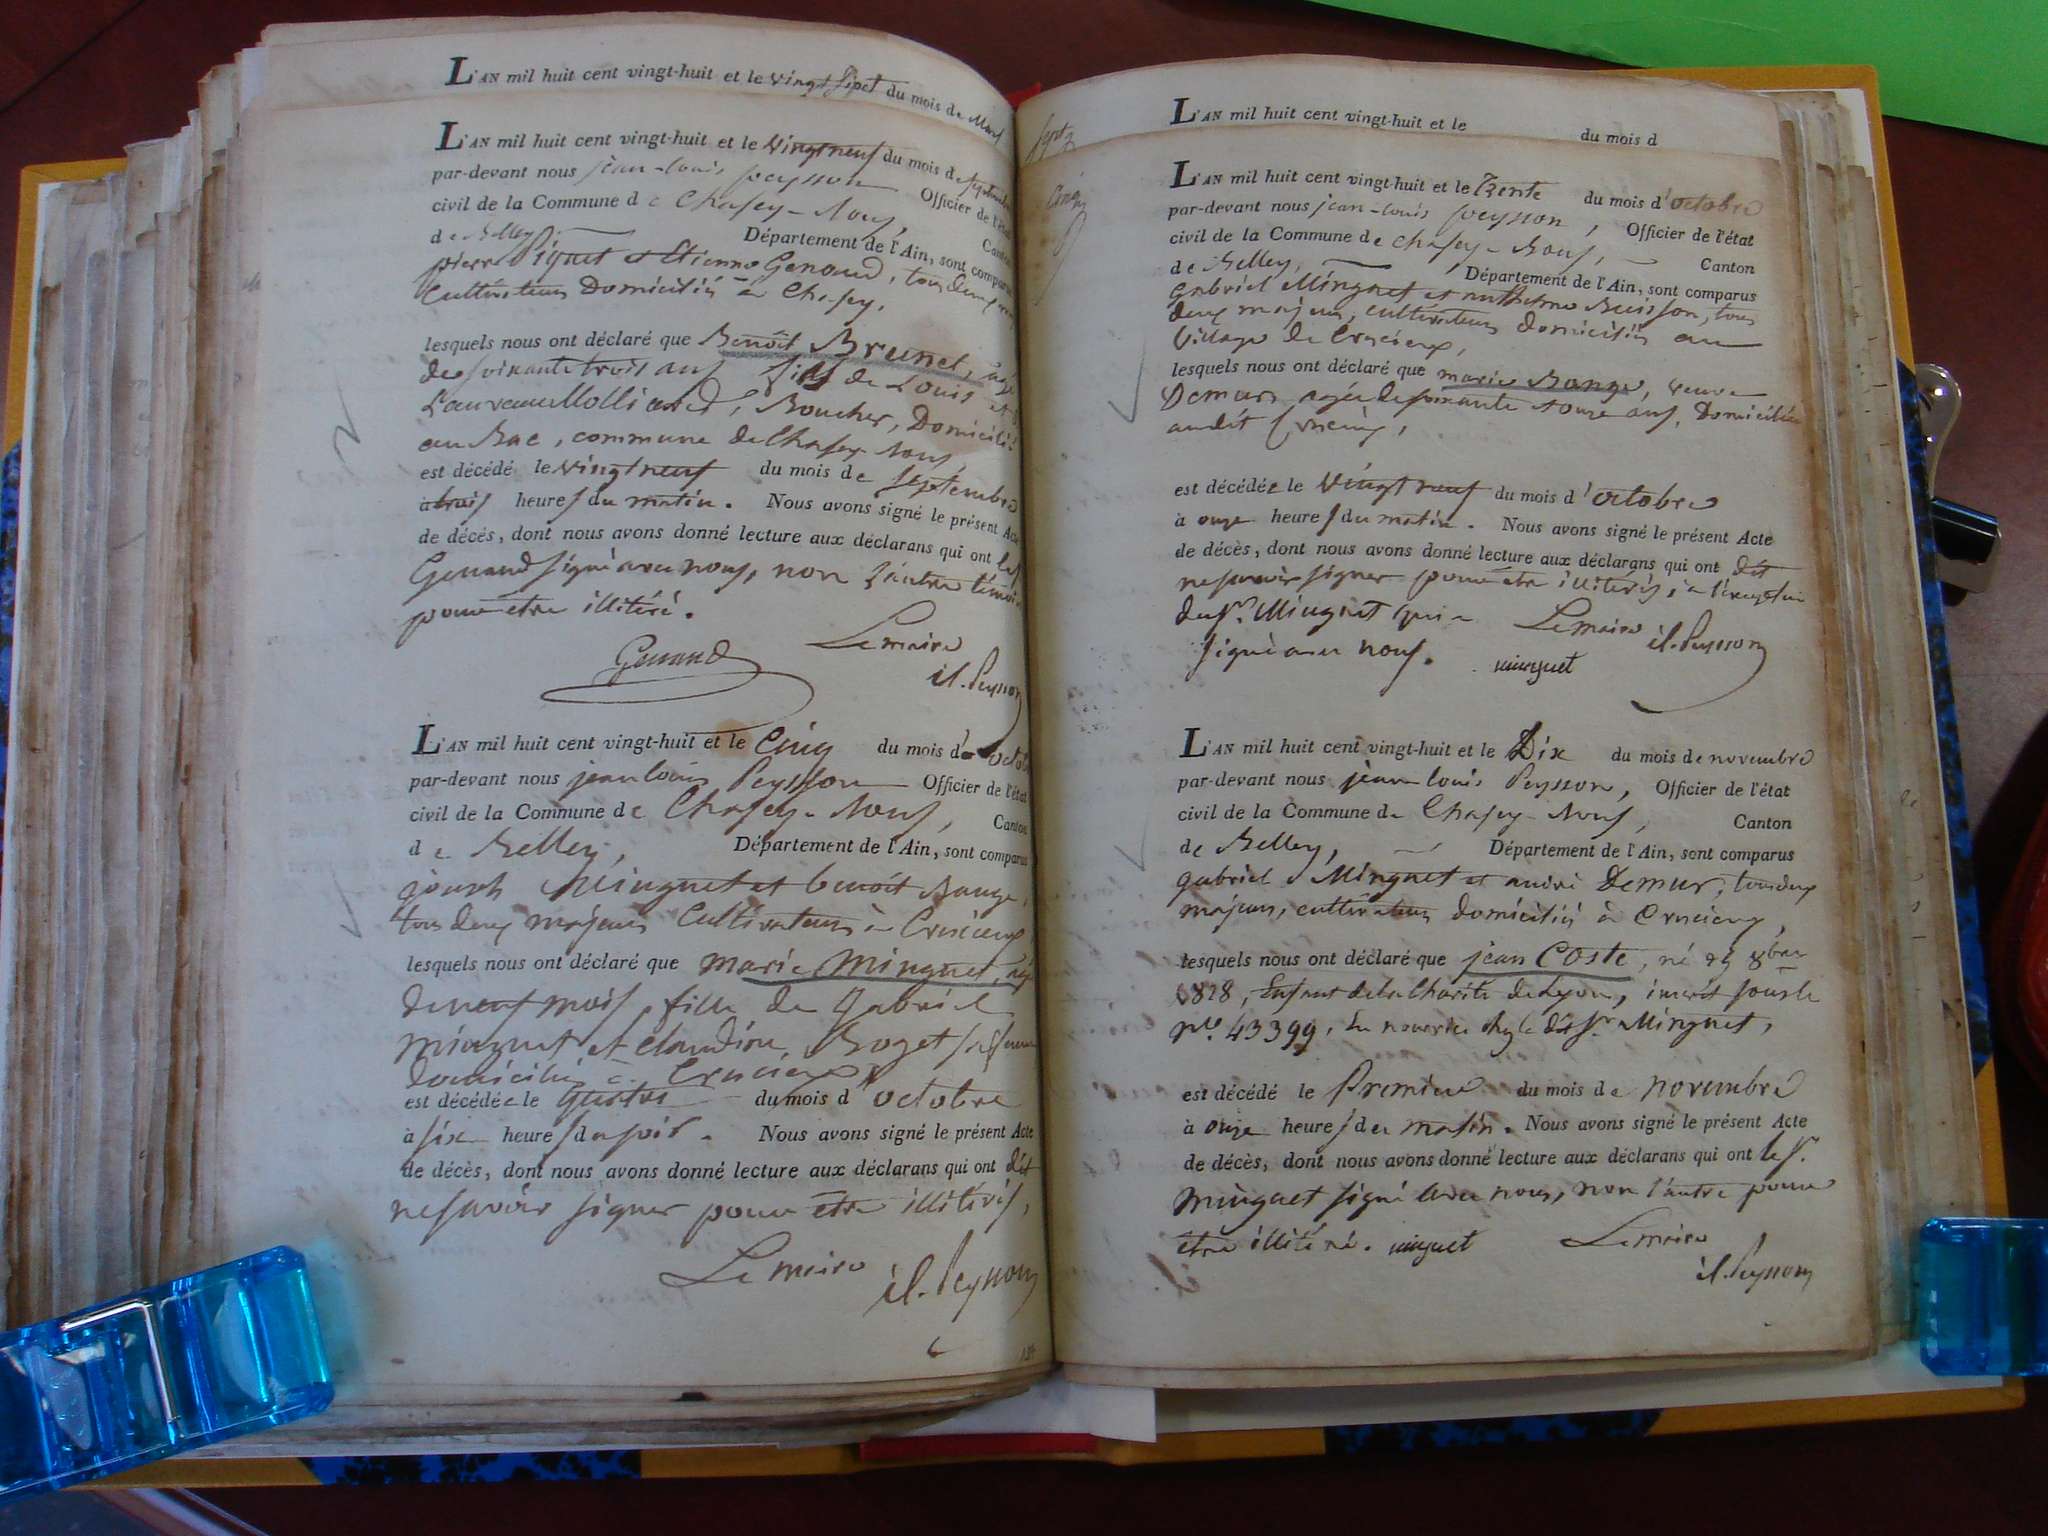 L'AN mil huit cent vingt-huit et le vingt sept du mois de Mars
L'AN mil huit cent vingt-huit et le vingt neuf du mois de septembre
par-devant nous jean-louis peysson Officier de l'état
civil de la Commune de Chasey-Bons, Canton
de Belley, Département de l'Ain, sont comparus
pierre Piguet et Etienne Genand, tous deux
cultivateurs Domiciliés à Chasey,
lesquels nous ont déclaré que Benoît Brunet, agé
de soixante trois ans fils de Louis et
Molliard, Boucher, Domicilié
au Bac, commune de Chasey-Bons,
est décédé le vingt neuf du mois de septembre
à trois heures du matin. Nous avons signé le présent Acte
de décès, dont nous avons donné lecture aux déclarans qui ont led
Genand signé avec nous, non l'autre témoin
pour etre illitéré.
Le maire
Genand
jl. Peysson
L'AN mil huit cent vingt-huit et le Cinq du mois d'octobre
par-devant nous jean louis Peysson Officier de l'état
civil de la Commune de Chasey-Bons, Canton
de Belley, Département de l'Ain, sont comparus
joseph Minguet et benoit Bange,
tous deux majeurs cultivateurs à Crucieux
lesquels nous ont déclaré que marie Minguet, agé
de neuf mois, fille de Gabriel
minguet et claudine Roget sa femme
domiciliés à Crucieux
est décédée le quatre du mois d'octobre
à six heures du soir. Nous avons signé le présent Acte
de décès, dont nous avons donné lecture aux déclarans qui ont dit
ne savoir signer pour etre illitérés,
Le maire
jl. Peysson
L'AN mil huit cent vingt-huit et le du mois d
L'AN mil huit cent vingt-huit et le Trente du mois d'octobre
par-devant nous jean-louis peysson, Officier de l'état
civil de la Commune de chasey-Bons, Canton
de Belley, Département de l'Ain, sont comparus
gabriel Minguet et anthelme Buisson, tous
deux majeurs, cultivateurs domiciliés au
village de Crucieux,
lesquels nous ont déclaré que marie Bange, veuve
Demur, agée de soixante et onze ans, Domiciliée
audit Crucieux,
est décédée le vingt neuf du mois d'octobre
à onze heures du matin. Nous avons signé le présent Acte
de décès, dont nous avons donné lecture aux déclarans qui ont dit
ne savoir signer pour etre illitérés, à l'exception
du sr. Minguet qui a
signé avec nous.
Le maire
minguet
jl. Peysson
L'AN mil huit cent vingt-huit et le Dix du mois de novembre
par-devant nous jean louis Peysson, Officier de l'état
civil de la Commune de Chasey-Bons, Canton
de Belley, Département de l'Ain, sont comparus
gabriel Minguet et andré Demur, tous deux
majeurs, cultivateurs domiciliés à Crucieux,
lesquels nous ont déclaré que jean COste, né 8bre
1828, Enfant de la Charité de Lyon, inscrit sous le
no. 43399, En nourrice chez le dit sr Minguet,
est décédé le Premier du mois de novembre
à onze heures du matin. Nous avons signé le présent Acte
de décès, dont nous avons donné lecture aux déclarans qui ont le sr.
minguet signé avec nous, non l'autre pour
être illitéré. minguet Le maire
jl. Peysson